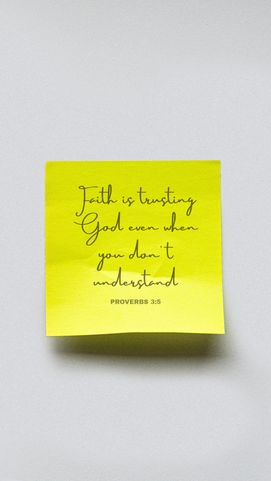 Faith is trusting
God even when
you don't
understand
PROVERBS 3:5